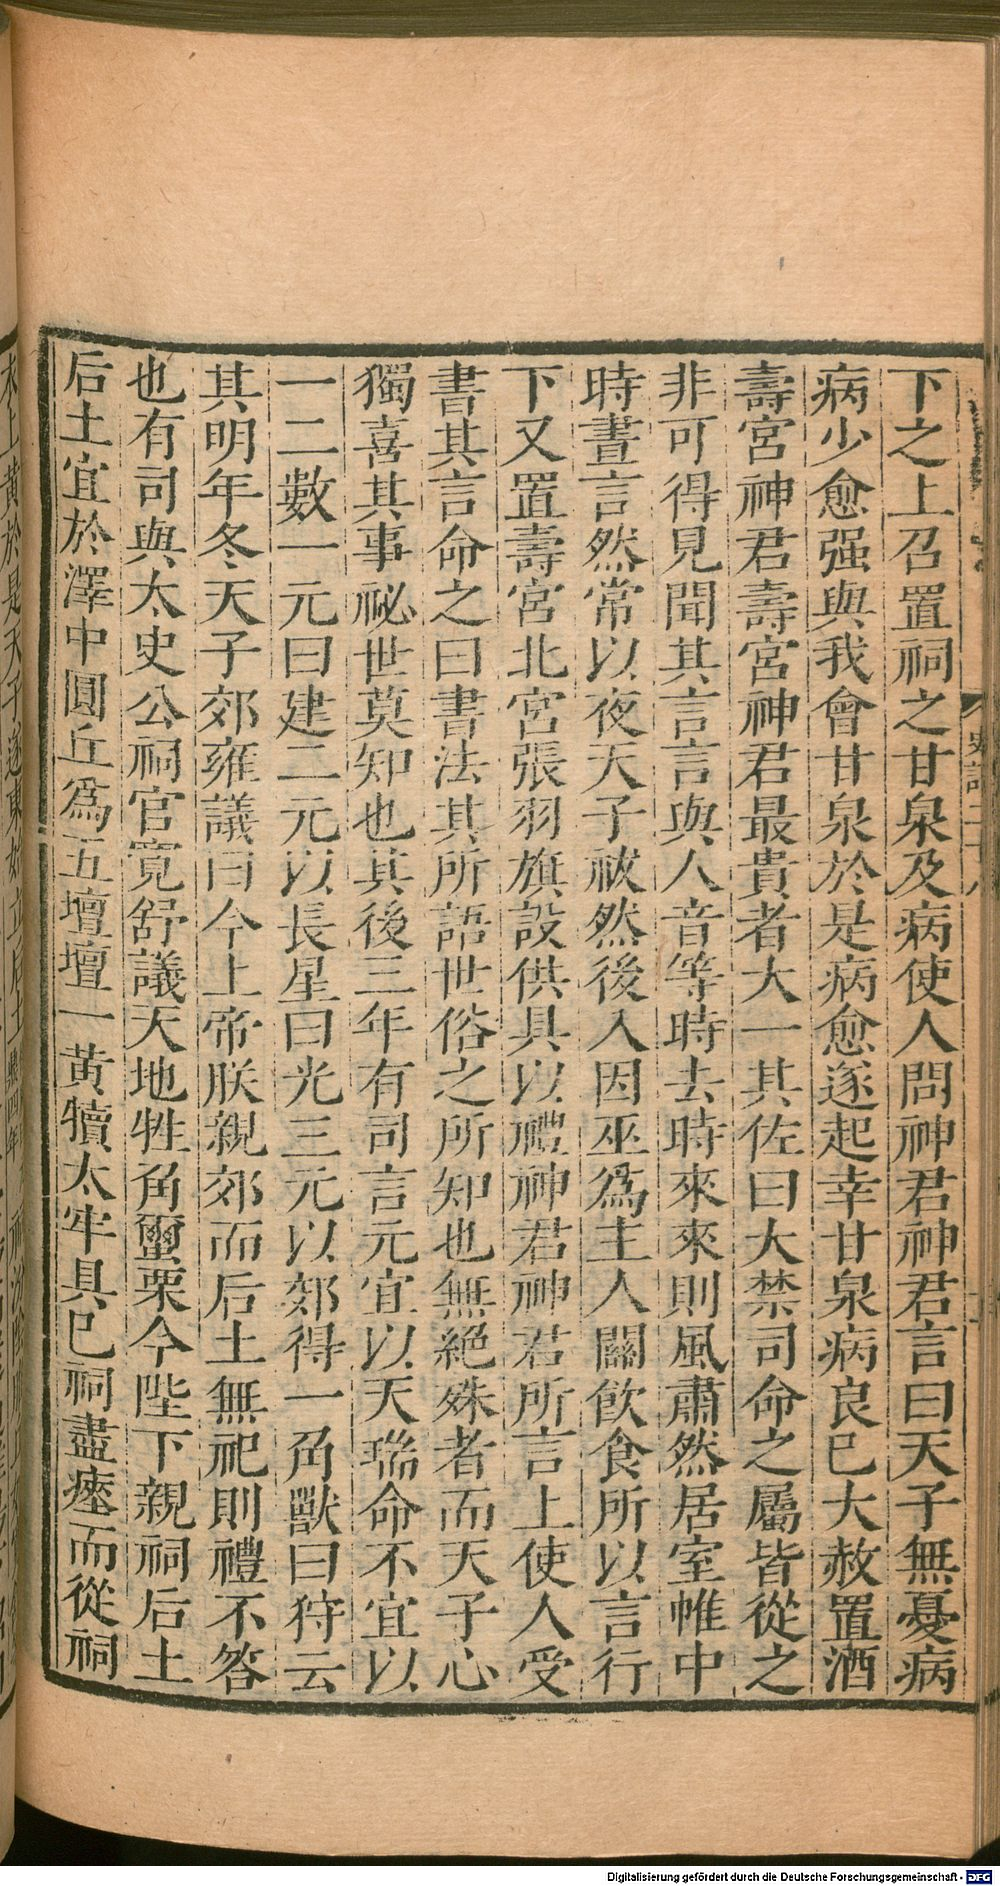 下之上召置祠之甘泉及病使人問神君神君言曰天子無憂病
病少愈强與我會甘泉於是病愈遂起幸甘泉病良已大赦置酒
壽宮神君壽宮神君最貴者大一其佐曰大禁司命之屬皆從之
非可得見聞其言言與人音等時去時來來則風肅然居室帷中
時晝言然常以夜天子祓然後入因巫爲主人關飲食所以言行
下又置壽宮北宮張羽旗設供具以禮神君神君所言上使人受
書其言命之曰書法其所語世俗之所知也無絕殊者而天子心
獨喜其事祕世莫知也其後三年有司言元宜以天瑞命不宜以
一二數一元曰建二元以長星曰光三元以郊得一角獸曰狩云
其明年冬天子郊雍議曰今上帝朕親郊而后土無祀則禮不答
也有司與太史公祠官寬舒議天地牲角璽栗今陛下親祠后土
后土宜於澤中圓丘爲五壇壇一黃犢太牢具已祠盡瘞而從祠
史記二十八
Digitalisierung gefördert durch die Deutsche Forschungsgemeinschaft - DFG